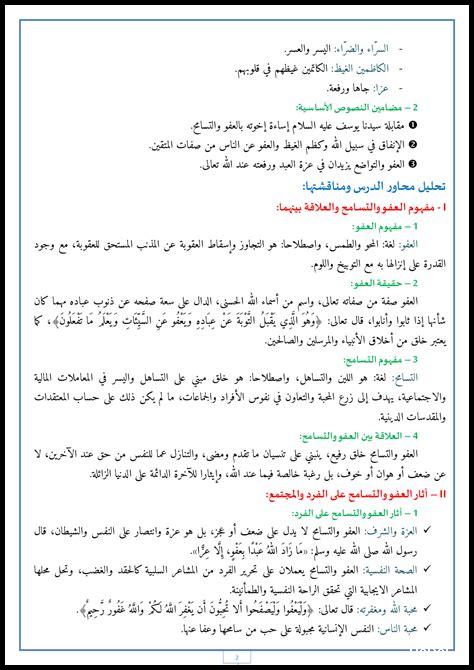 - السرّاء والضرّاء: اليسر والعسر.
- الكاظمين الغيظ: الكاتمين غيظهم في قلوبهم.
- عزا: جاها ورفعة.
2 – مضامين النصوص الأساسية:
❶ مقابلة سيدنا يوسف عليه السلام إساءة إخوته بالعفو والتسامح.
❷ الإنفاق في سبيل الله وكظم الغيظ والعفو عن الناس من صفات المتقين.
❸ العفو والتواضع يزيدان في عزة العبد ورفعته عند الله تعالى.
تحليل محاور الدرس ومناقشتها:
I - مفهوم العفو والتسامح والعلاقة بينهما:
1 – مفهوم العفو:
العفو: لغة: المحو والطمس، واصطلاحا: هو التجاوز وإسقاط العقوبة عن المذنب المستحق للعقوبة، مع وجود
القدرة على إنزالها به مع التوبيخ واللوم.
2 – حقيقة العفو:
العفو صفة من صفاته تعالى، واسم من أسماء الله الحسنى، الدال على سعة صفحه عن ذنوب عباده مهما كان
شأنها إذا تابوا وأنابوا، قال تعالى: ﴿وَهُوَ الَّذِي يَقْبَلُ التَّوْبَةَ عَنْ عِبَادِهِ وَيَعْفُو عَنِ السَّيِّئَاتِ وَيَعْلَمُ مَا تَفْعَلُونَ﴾، كما
يعتبر خلق من أخلاق الأنبياء والمرسلين والصالحين.
3 – مفهوم التسامح:
التسامح: لغة: هو اللين والتساهل، واصطلاحا: هو خلق مبني على التساهل واليسر في المعاملات المالية
والاجتماعية، يهدف إلى زرع المحبة والتعاون في نفوس الأفراد والجماعات، ما لم يكن ذلك على حساب المعتقدات
والمقدسات الدينية.
4 – العلاقة بين العفو والتسامح:
العفو والتسامح خلق رفيع، ينبني على تنسيان ما تقدم ومضى، والتنازل عما للنفس من حق عند الآخرين، لا
عن ضعف أو هوان أو خوف، بل رغبة خالصة فيما عند الله، وإيثارا للآخرة الدائمة على الدنيا الزائلة.
II – آثار العفو والتسامح على الفرد والمجتمع:
1 – آثار العفو والتسامح على الفرد:
✓ العزة والشرف: العفو والتسامح لا يدل على ضعف أو عجز، بل هو عزة وانتصار على النفس والشيطان، قال
رسول الله صلى الله عليه وسلم: «مَا زَادَ اللهُ عَبْدًا بِعَفْوٍ، إِلَّا عِزًّا».
✓ الصحة النفسية: العفو والتسامح يعملان على تحرير الفرد من المشاعر السلبية كالحقد والغضب، وتحل محلها
المشاعر الايجابية التي تحقق الراحة النفسية والطمأنينة.
✓ محبة الله ومغفرته: قال تعالى: ﴿وَلْيَعْفُوا وَلْيَصْفَحُوا أَلَا تُحِبُّونَ أَن يَغْفِرَ اللَّهُ لَكُمْ وَاللَّهُ غَفُورٌ رَّحِيمٌ﴾.
✓ محبة الناس: النفس الإنسانية مجبولة على حب من سامحها وعفا عنها.
2